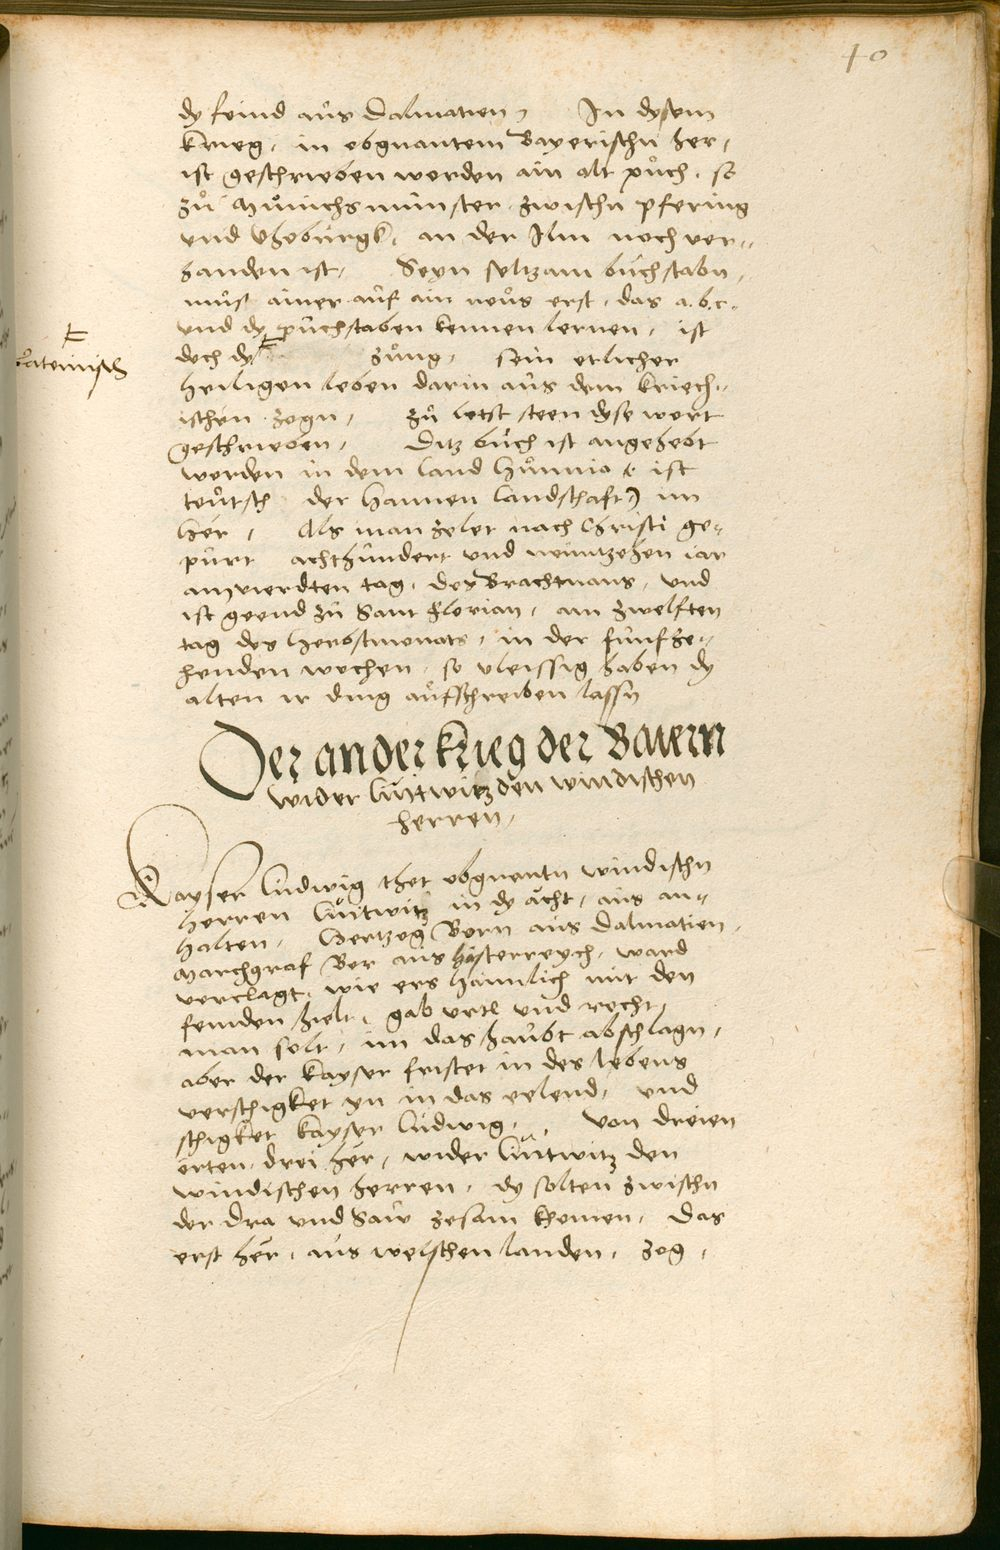 40
dy feind aus Dalmatien, In dysem
krieg, in obgnantem Bayerischn her,
ist geschrieben worden ain alt puͦch, so
zuͦ Muͤnichsmünster zwischn pfering
und Vhoburgk, an der Ilm noch ver-
handen ist, Seyn seltzam buchstabn,
muͦst ainer auf ain neus erst, das a.b.c.
und dy puchstaben kennen lernen, ist
Lateinisch
doch dy zung, sein etlicher
heiligen leben darin aus dem kriech-
ischen zogn, zuͦ letst steen dyse wort
geschrieben, Ditz buch ist angehebt
worden in dem land Hunnia (: ist
teutsch der Hannen landschaft) im
her, Als man zelet nach Christi ge-
purt achthundert und neuntzehen iar
am vierdten tag, des Brachmans, und
ist geend zu Sant Florian, am zwelften
tag des herbstmonats, in der funfze-
henden wochen, so vleissig haben dy
alten ir ding aufschreiben lassn
Der ander krieg der Baiern
wider Luitwitz den windischen
herren,
Kayser Ludwig thet obgnantn windischn
herren Luitwitz in dy ächt, aus an-
halten, Hertzog Born aus Dalmatien,
Marchgraf Ber aus Histerreych, ward
verclagt, wie ers haimlich mit den
feinden hielt, gab urtl und recht,
man solt, im das haubt abschlagn,
aber der kayser fristet in des lebens
verschigket yn in das eelend, und
schigket kayser Ludwig, von dreien
orten, drei her, wider Luitwitz den
windischen herren, dy solten zwischn
der Dra und Saw zesam khomen, Das
erst her, aus welschen landen, zog,